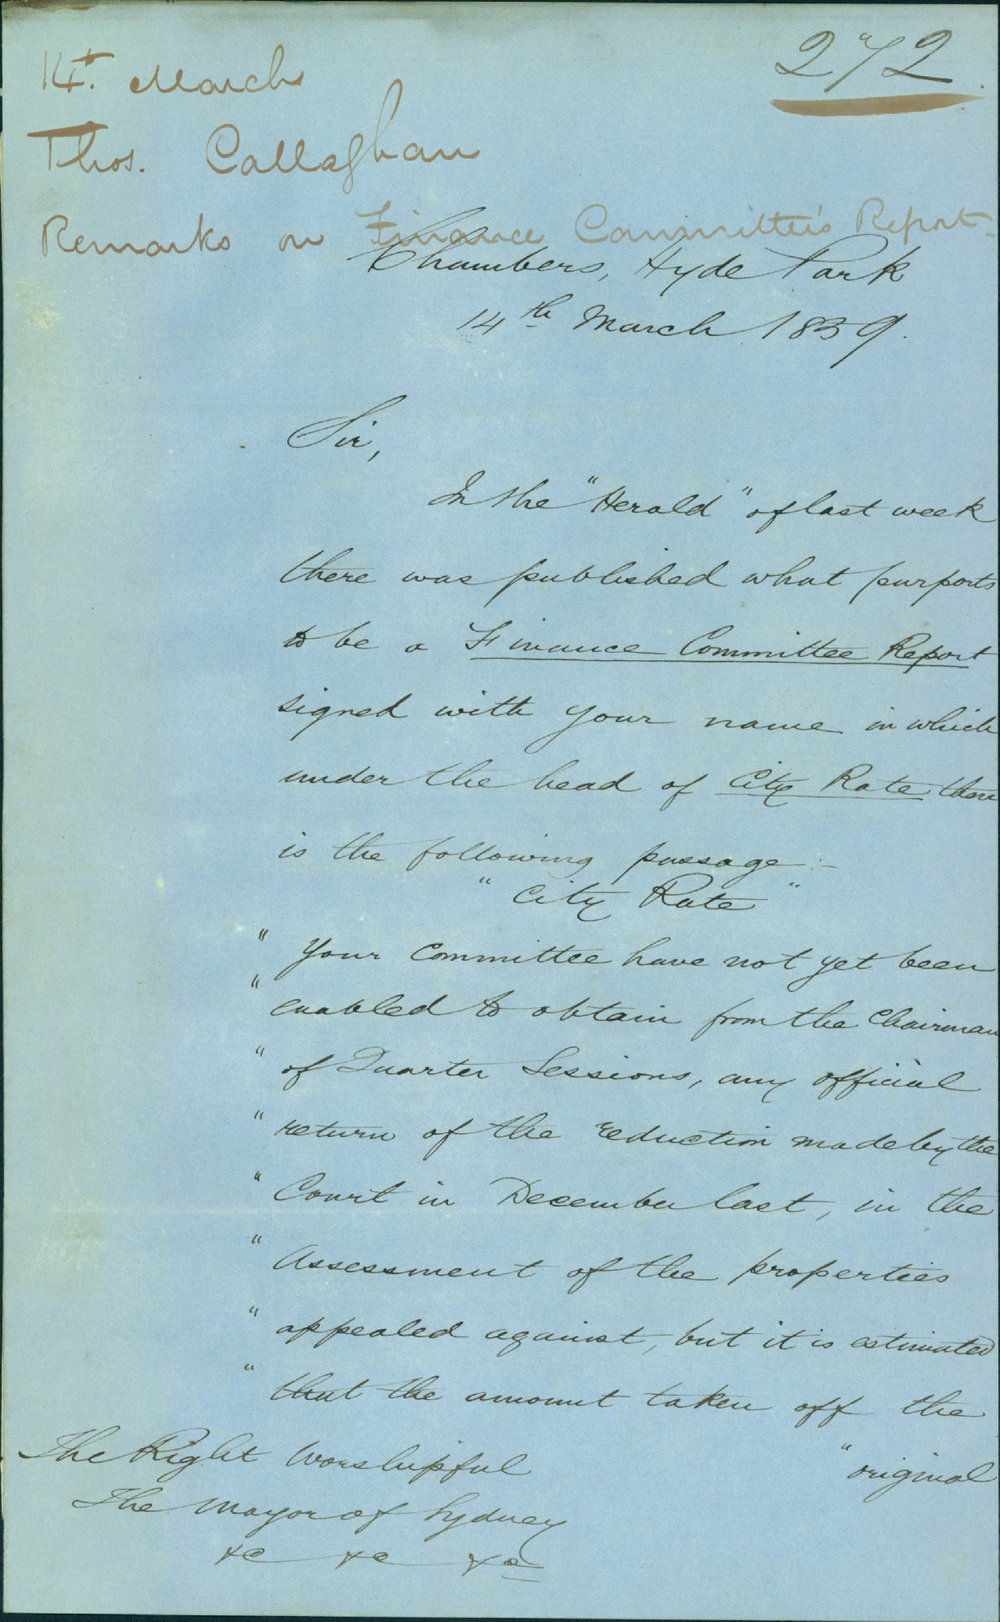 272
14th. March
Thos. Callaghan
Remarks on Finance Committee's Report.
Chambers, Hyde Park
14th March 1859.
Sir,
In the "Herald" of last week
there was published what purports
to be a Finance Committee Report
signed with your name in which
under the head of City Rate there
is the following passage:-
"City Rate"
"Your Committee have not yet been
"enabled to obtain from the Chairman
"of Quarter Sessions, any official
"return of the reduction made by the
"Court in December last, in the
"Assessment of the properties
"appealed against, but it is estimated
"that the amount taken off the
"original
The Right Worshipful
The Mayor of Sydney
&c &c &c